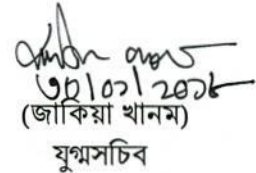 ৩০/০১/২০১৮
(জাকিয়া খানম)
যুগ্মসচিব